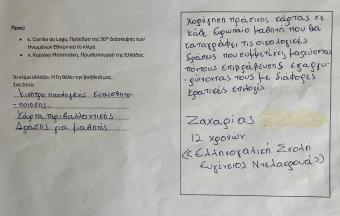 Προς:
• κ. Corrêa do Lago, Πρόεδρο της 30ης Διάσκεψης των
Ηνωμένων Εθνών για το κλίμα
• κ. Κυριάκο Μητσοτάκη, Πρωθυπουργό της Ελλάδας
Το κλίμα αλλάζει. Η Γη θέλει την βοήθειά μας.
Σας ζητώ:
Κίνητρο οικολογικής ευαισθητο-
ποίησης
Κάρτα περιβαλλοντικής
Δράσης για μαθητές
Χορήγηση πράσινης κάρτας σε
κάθε Ευρωπαίο μαθητή που θα
καταγράφει τις οικολογικές
δράσεις που συμμετέχει, μαζεύοντας
πόντους επιβράβευσης εξαργυ-
ρώνοντάς τους με διάφορες
κρατικές επιλογές.
Ζαχαρίας
12 χρονών
(«Ελληνογαλλική Σχολή
Ευγένιος Ντελακρουά»)